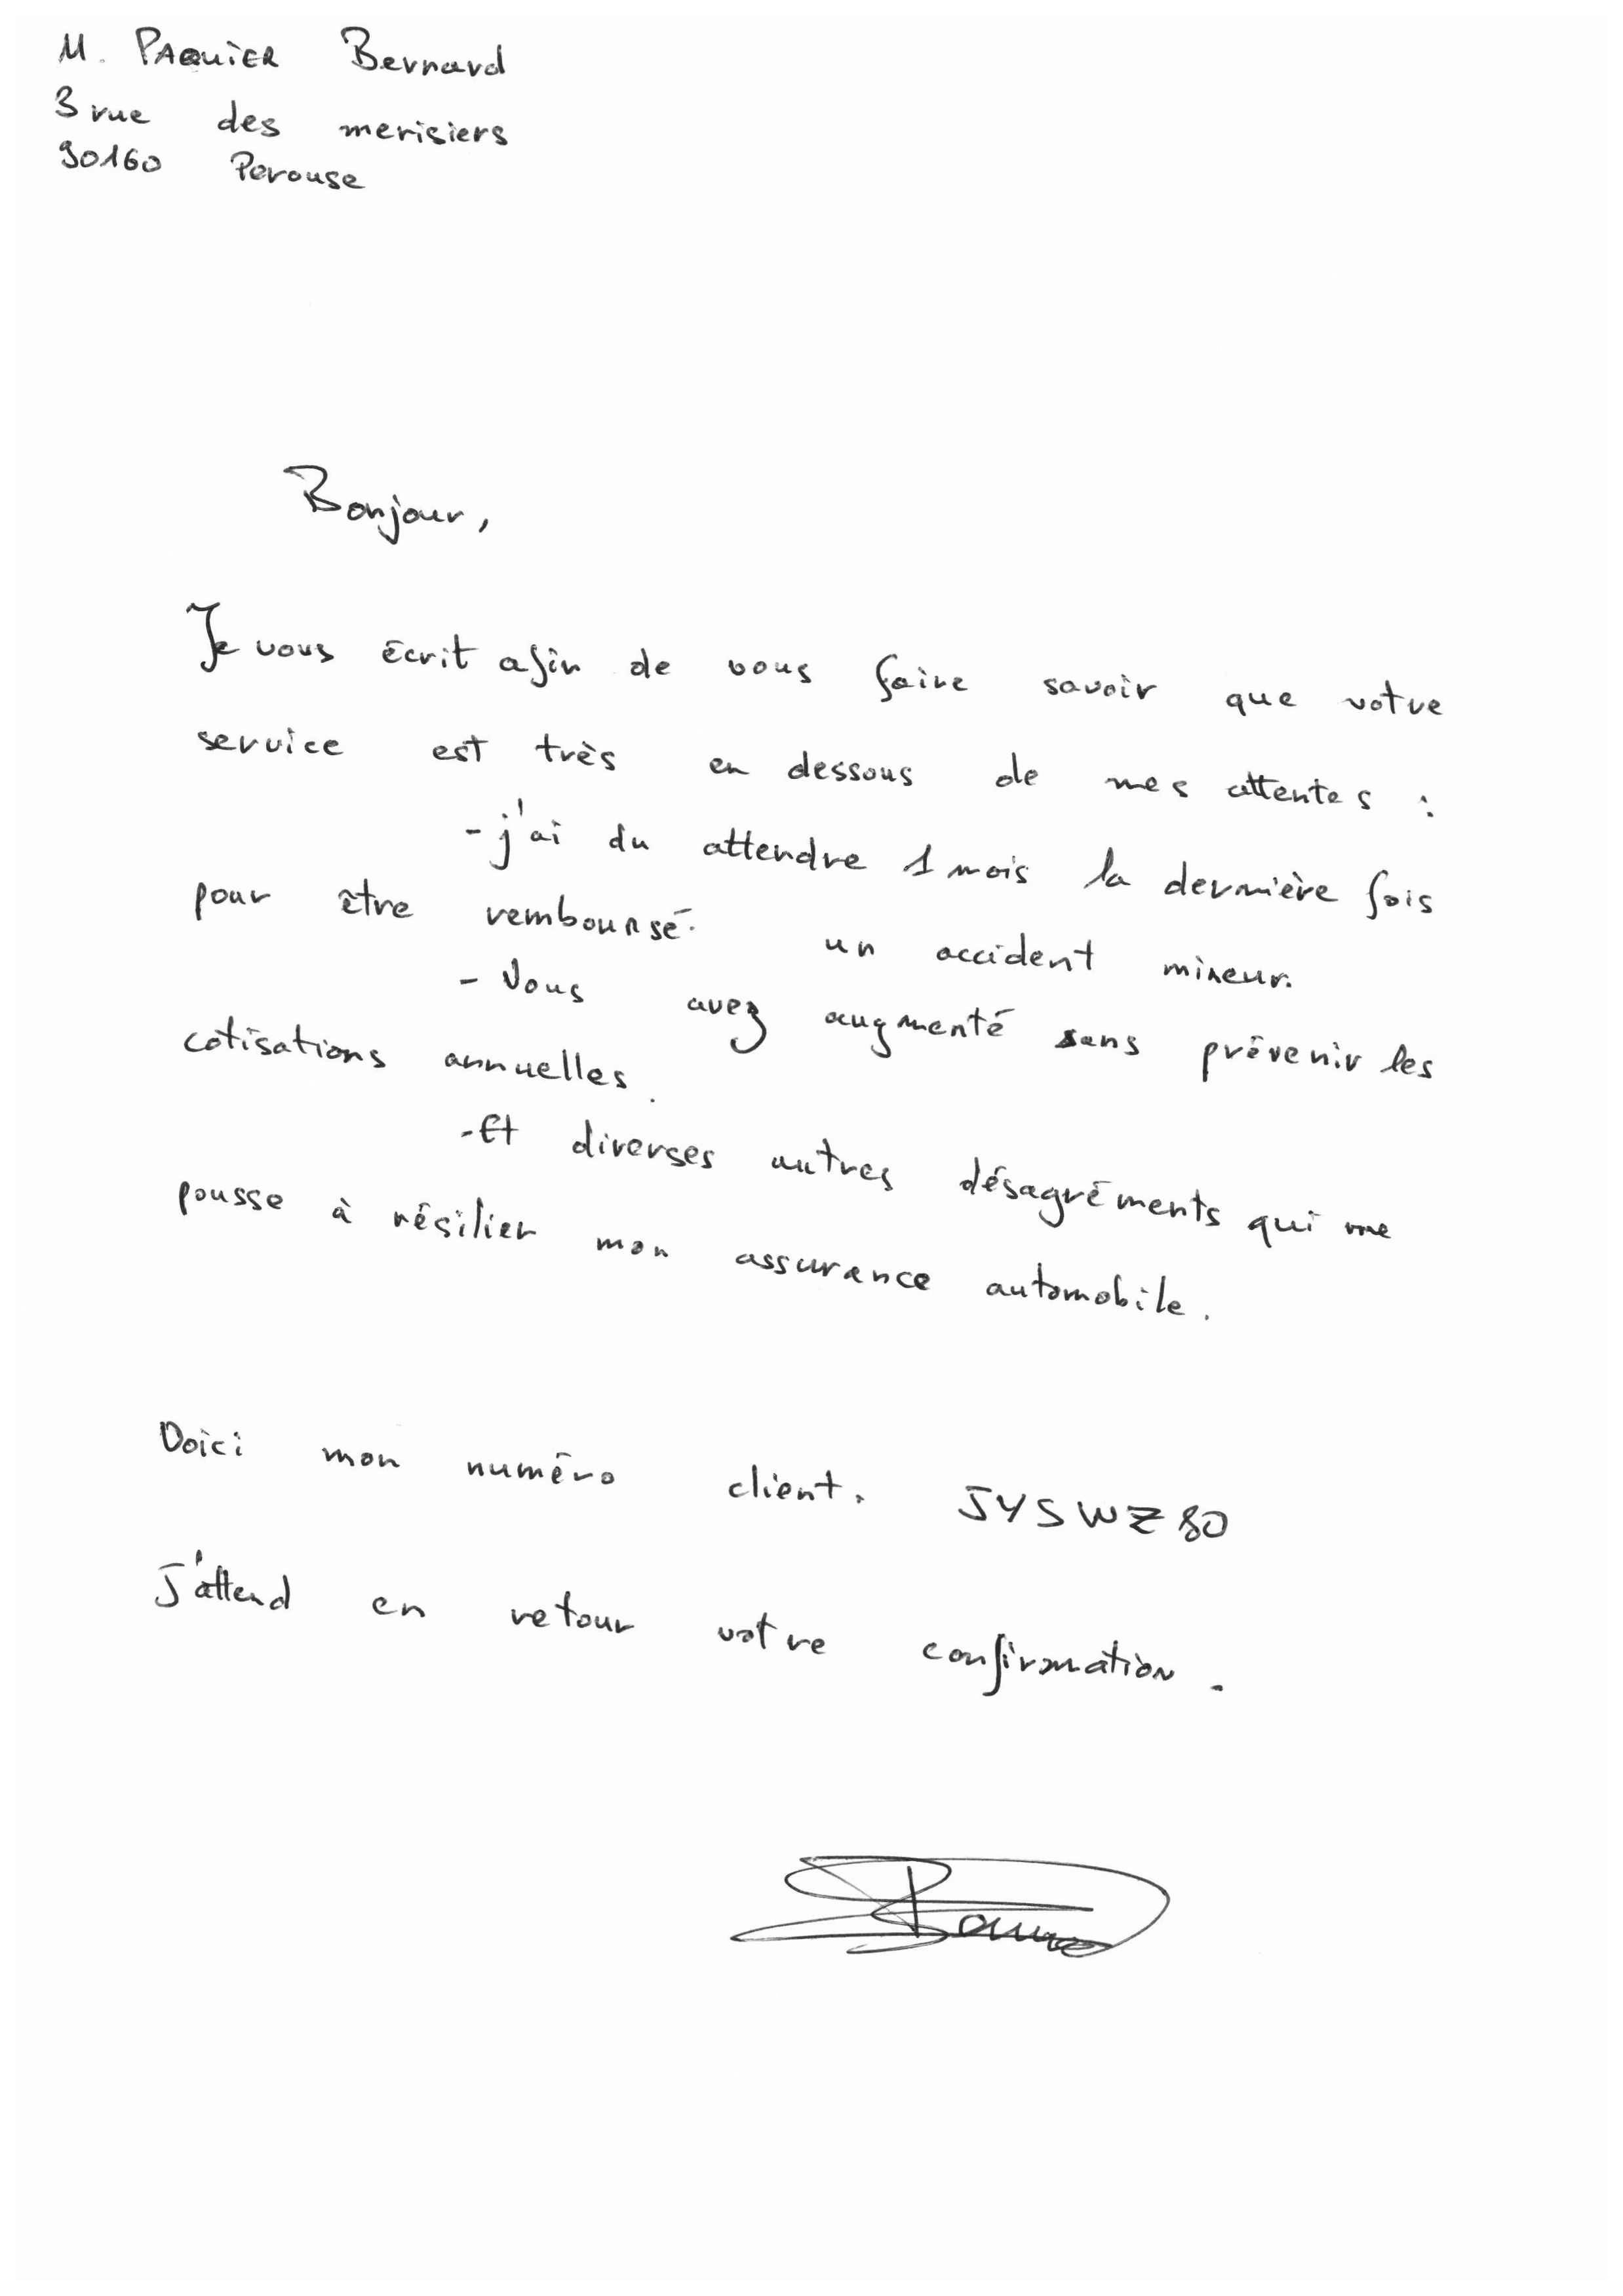 M. PAQUIER Bernard
3 rue des merisiers
90160 Perouse
Bonjour,
Je vous écrit afin de vous faire savoir que votre
service est très en dessous de mes attentes :
- j'ai du attendre 1 mois la dernière fois
pour être remboursé. un accident mineur.
- Vous avez augmenté sans prévenir les
cotisations annuelles.
- Et diverses autres désagréments qui me
pousse à résilier mon assurance automobile.
Voici mon numéro client. JYSWZ80
J'attend en retour votre confirmation.